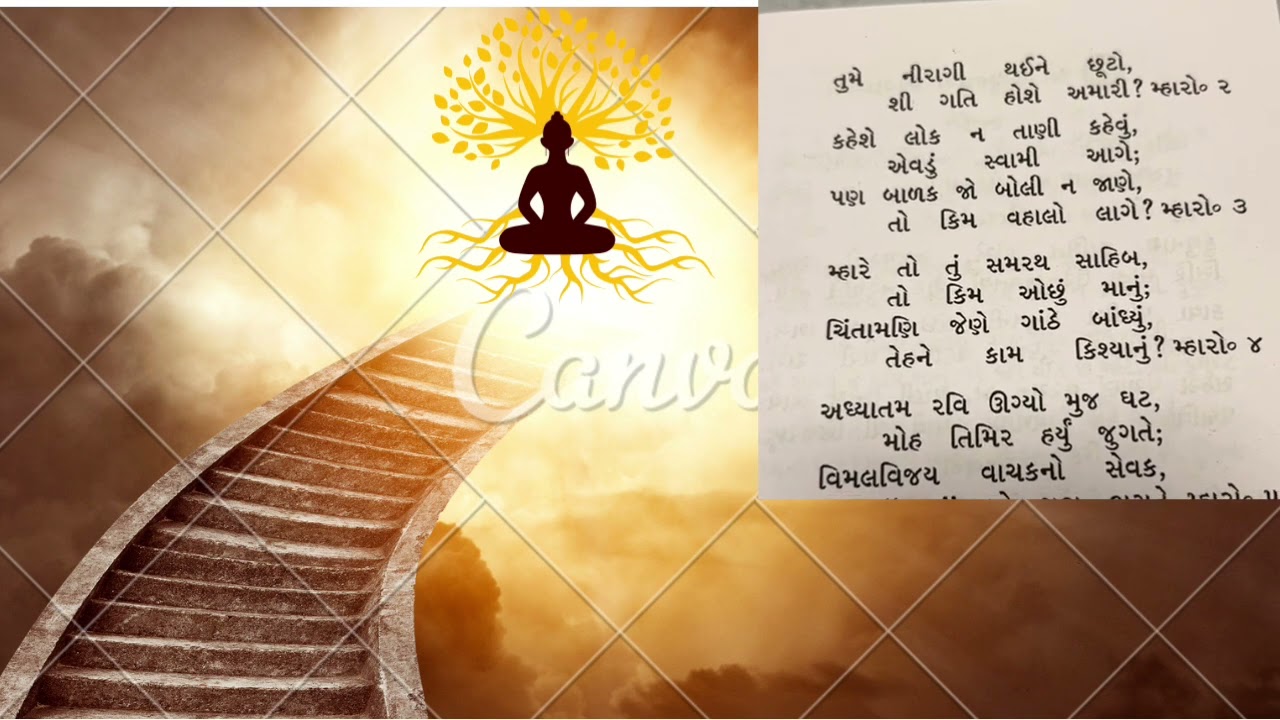 તુમે નીરાગી થઈને છૂટો,
શી ગતિ હોશે અમારી? મ્હારો૦ ૨
કહેશે લોક ન તાણી કહેવું,
એવડું સ્વામી આગે;
પણ બાળક જો બોલી ન જાણે,
તો કિમ વહાલો લાગે? મ્હારો૦ ૩
મ્હારે તો તું સમરથ સાહિબ,
તો કિમ ઓછું માનું;
ચિંતામણિ જેણે ગાંઠે બાંધ્યું,
તેહને કામ કિશ્યાનું? મ્હારો૦ ૪
અધ્યાતમ રવિ ઊગ્યો મુજ ઘટ,
મોહ તિમિર હર્યું જુગતે;
વિમલવિજય વાચકનો સેવક,
Canva